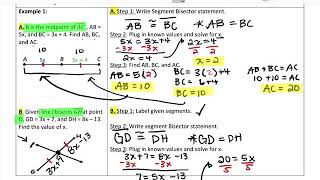 Example 1:
A. B is the midpoint of AC, AB =
5x, and BC = 3x + 4. Find AB, BC,
and AC.
10 10
A 5x B 3x + 4 C
A. Step 1: Write Segment Bisector statement.
AB ≅ BC * AB = BC
Step 2: Plug in known values and solve for x.
5x = 3x+4
-3x -3x
2x = 4
2 2
x = 2
Step 3: Find AB, BC, and AC.
AB = 5(2)
AB = 10
BC = 3(2)+4
BC = 6+4
BC = 10
AB + BC = AC
10 + 10 = AC
AC = 20
B. Given line l bisects GH at point
D, GD = 3x + 7, and DH = 8x – 13.
Find the value of x.
3x+7
8x-13
B. Step 1: Label given segments.
Step 2: Write Segment Bisector statement.
GD ≅ DH * GD = DH
Step 3: Plug in known values and solve for x.
3x+7 = 8x -13
-3x -3x
7 = 5x -13
20 = 5x
5 5